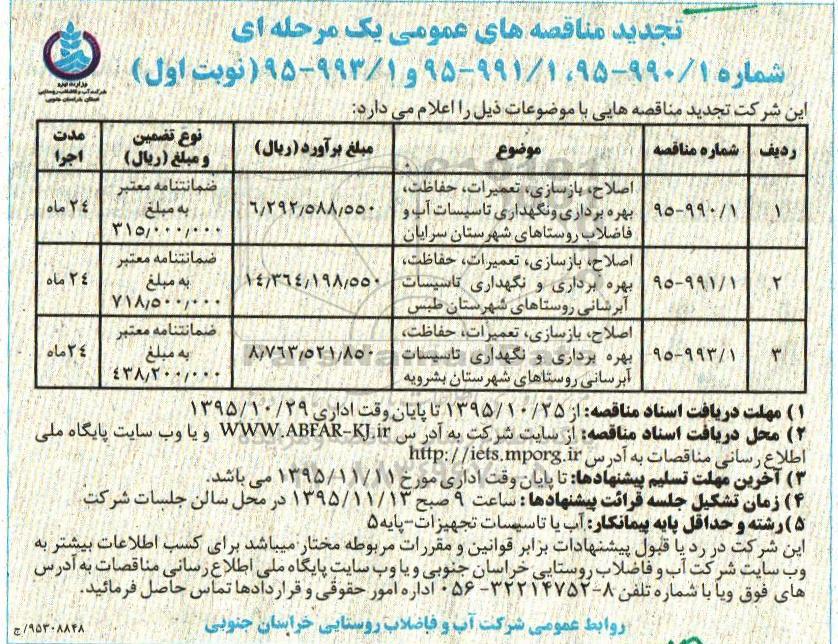 تجدید مناقصه های عمومی یک مرحله ای
شماره ۹۵-۹۹۰/۱، ۹۵-۹۹۱/۱ و ۹۵-۹۹۳/۱ (نوبت اول)
وزارت نیرو
شرکت آب و فاضلاب روستایی
استان خراسان جنوبی
این شرکت تجدید مناقصه هایی با موضوعات ذیل را اعلام می دارد:
ردیف شماره مناقصه موضوع مبلغ برآورد (ریال) نوع تضمین و مبلغ (ریال) مدت اجرا
۱ ۹۵-۹۹۰/۱ اصلاح، بازسازی، تعمیرات، حفاظت، بهره برداری ونگهداری تاسیسات آب و فاضلاب روستاهای شهرستان سرایان ۶٫۲۹۲٫۵۸۸٫۵۵۰ ضمانتنامه معتبر به مبلغ ۳۱۵٫۰۰۰٫۰۰۰ ۲۴ ماه
۲ ۹۵-۹۹۱/۱ اصلاح، بازسازی، تعمیرات، حفاظت، بهره برداری و نگهداری تاسیسات آبرسانی روستاهای شهرستان طبس ۱۴٫۳۶۴٫۱۹۸٫۵۵۰ ضمانتنامه معتبر به مبلغ ۷۱۸٫۵۰۰٫۰۰۰ ۲۴ ماه
۳ ۹۵-۹۹۳/۱ اصلاح، بازسازی، تعمیرات، حفاظت، بهره برداری و نگهداری تاسیسات آبرسانی روستاهای شهرستان بشرویه ۸٫۷۶۳٫۵۲۱٫۸۵۰ ضمانتنامه معتبر به مبلغ ۴۳۸٫۲۰۰٫۰۰۰ ۲۴ ماه
۱) مهلت دریافت اسناد مناقصه: از ۱۳۹۵/۱۰/۲۵ تا پایان وقت اداری ۱۳۹۵/۱۰/۲۹
۲) محل دریافت اسناد مناقصه: از سایت شرکت به آدر س WWW.ABFAR-KJ.ir و یا وب سایت پایگاه ملی
اطلاع رسانی مناقصات به آدرس http://iets.mporg.ir
۳) آخرین مهلت تسلیم پیشنهادها: تا پایان وقت اداری مورخ ۱۳۹۵/۱۱/۱۱ می باشد.
۴) زمان تشکیل جلسه قرائت پیشنهادها: ساعت ۹ صبح ۱۳۹۵/۱۱/۱۳ در محل سالن جلسات شرکت
۵) رشته و حداقل پایه پیمانکار: آب یا تاسیسات تجهیزات-پایه۵
این شرکت در رد یا قبول پیشنهادات برابر قوانین و مقررات مربوطه مختار میباشد برای کسب اطلاعات بیشتر به
وب سایت شرکت آب و فاضلاب روستایی خراسان جنوبی و یا وب سایت پایگاه ملی اطلاع رسانی مناقصات به آدرس
های فوق ویا با شماره تلفن ۸-۳۲۲۱۴۷۵۲-۰۵۶ اداره امور حقوقی و قراردادها تماس حاصل فرمائید.
روابط عمومی شرکت آب و فاضلاب روستایی خراسان جنوبی
۹۵۳۰۸۸۴۸/ج